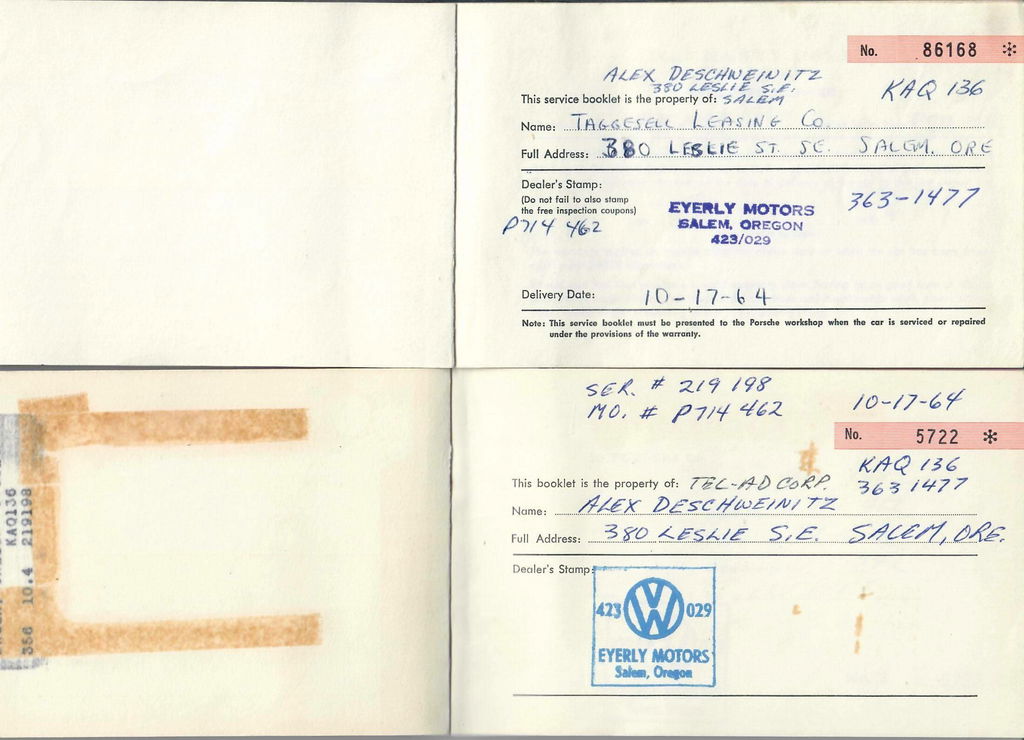 No. 86168 *
ALEX DESCHWEINITZ
380 LESLIE S.E.
KAQ 136
This service booklet is the property of: SALEM
Name: TAGGESELL LEASING CO.
Full Address: 380 LESLIE ST. SE. SALEM, ORE
Dealer's Stamp:
(Do not fail to also stamp
the free inspection coupons)
P714 462
EYERLY MOTORS
SALEM, OREGON
423/029
363-1477
Delivery Date: 10-17-64
Note: This service booklet must be presented to the Porsche workshop when the car is serviced or repaired
under the provisions of the warranty.
KAQ136
356 10.4 219198
SER. # 219 198
MO. # P714 462
10-17-64
No. 5722 *
KAQ 136
This booklet is the property of: TEL-AD CORP. 363 1477
Name: ALEX DESCHWEINITZ
Full Address: 380 LESLIE S.E. SALEM, ORE.
Dealer's Stamp:
423 VW 029
EYERLY MOTORS
Salem, Oregon